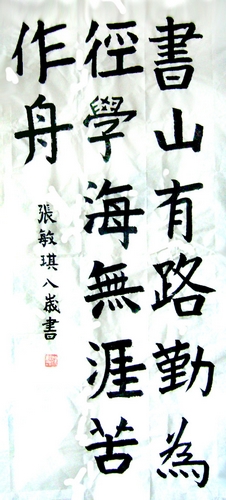 書山有路勤為
徑學海無涯苦
作舟
張敏琪八歲書